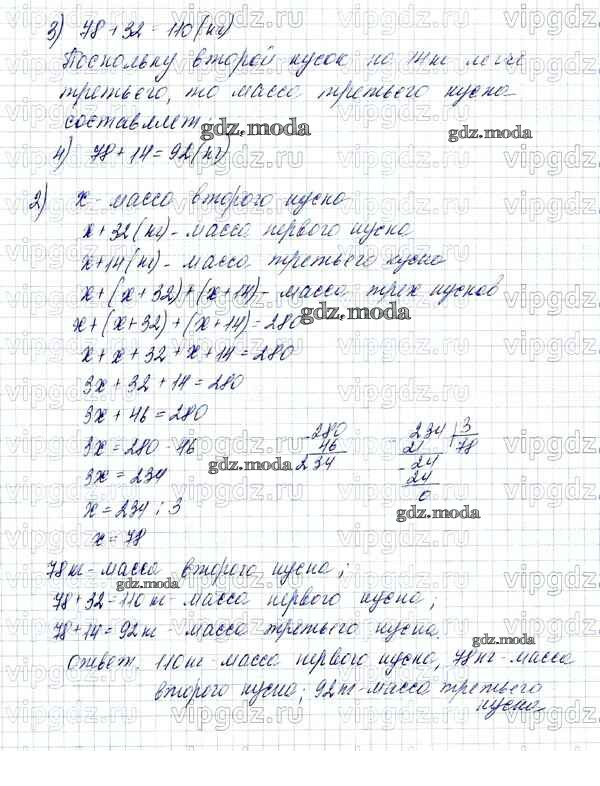 3) 78 + 32 = 110 (кг)
Поскольку второй кусок на 14 кг легче
третьего, то масса третьего куска
составляет
gdz.moda
4) 78 + 14 = 92 (кг)
2) x - масса второго куска
x + 32 (кг) - масса первого куска
x + 14 (кг) - масса третьего куска
x + (x + 32) + (x + 14) - масса трех кусков
x + (x + 32) + (x + 14) = 280
gdz.moda
x + x + 32 + x + 14 = 280
3x + 32 + 14 = 280
3x + 46 = 280
3x = 280 - 46
3x = 234
x = 234 : 3
x = 78
- 280
46
234
gdz.moda
234 3
21 78
- 24
24
0
gdz.moda
78 кг - масса второго куска;
gdz.moda
78 + 32 = 110 кг - масса первого куска;
78 + 14 = 92 кг - масса третьего куска.
gdz.moda
Ответ. 110 кг - масса первого куска, 78 кг - масса
второго куска; 92 кг - масса третьего
куска.
vipgdz.ru